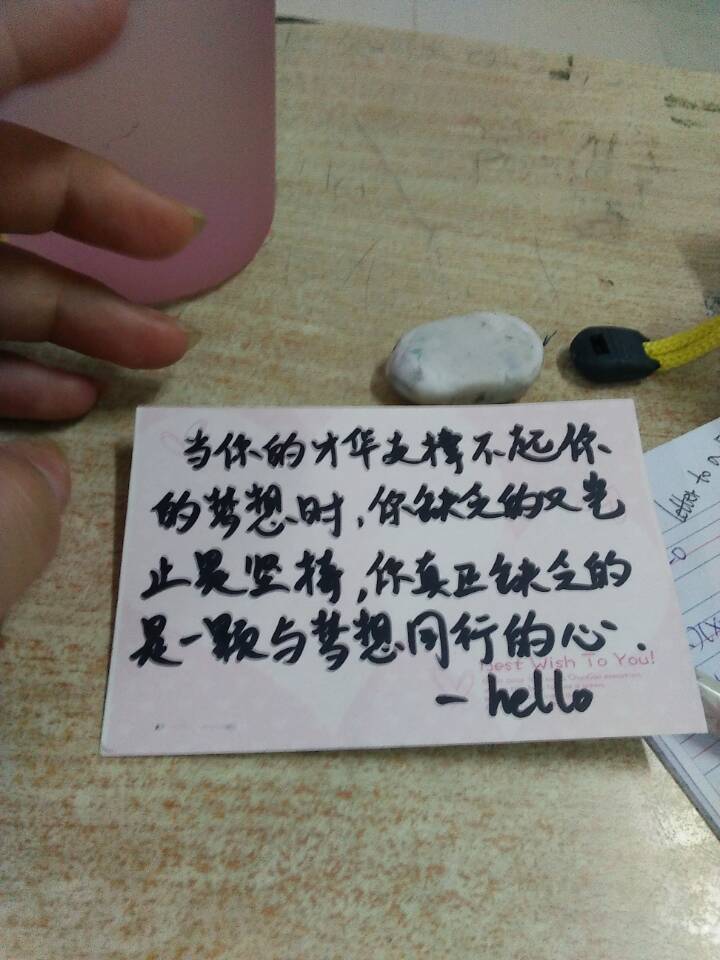 当你的才华支撑不起你
的梦想时,你缺乏的又岂
止是坚持,你真正缺乏的
是一颗与梦想同行的心.
Best Wish To You!
- hello
letter to a